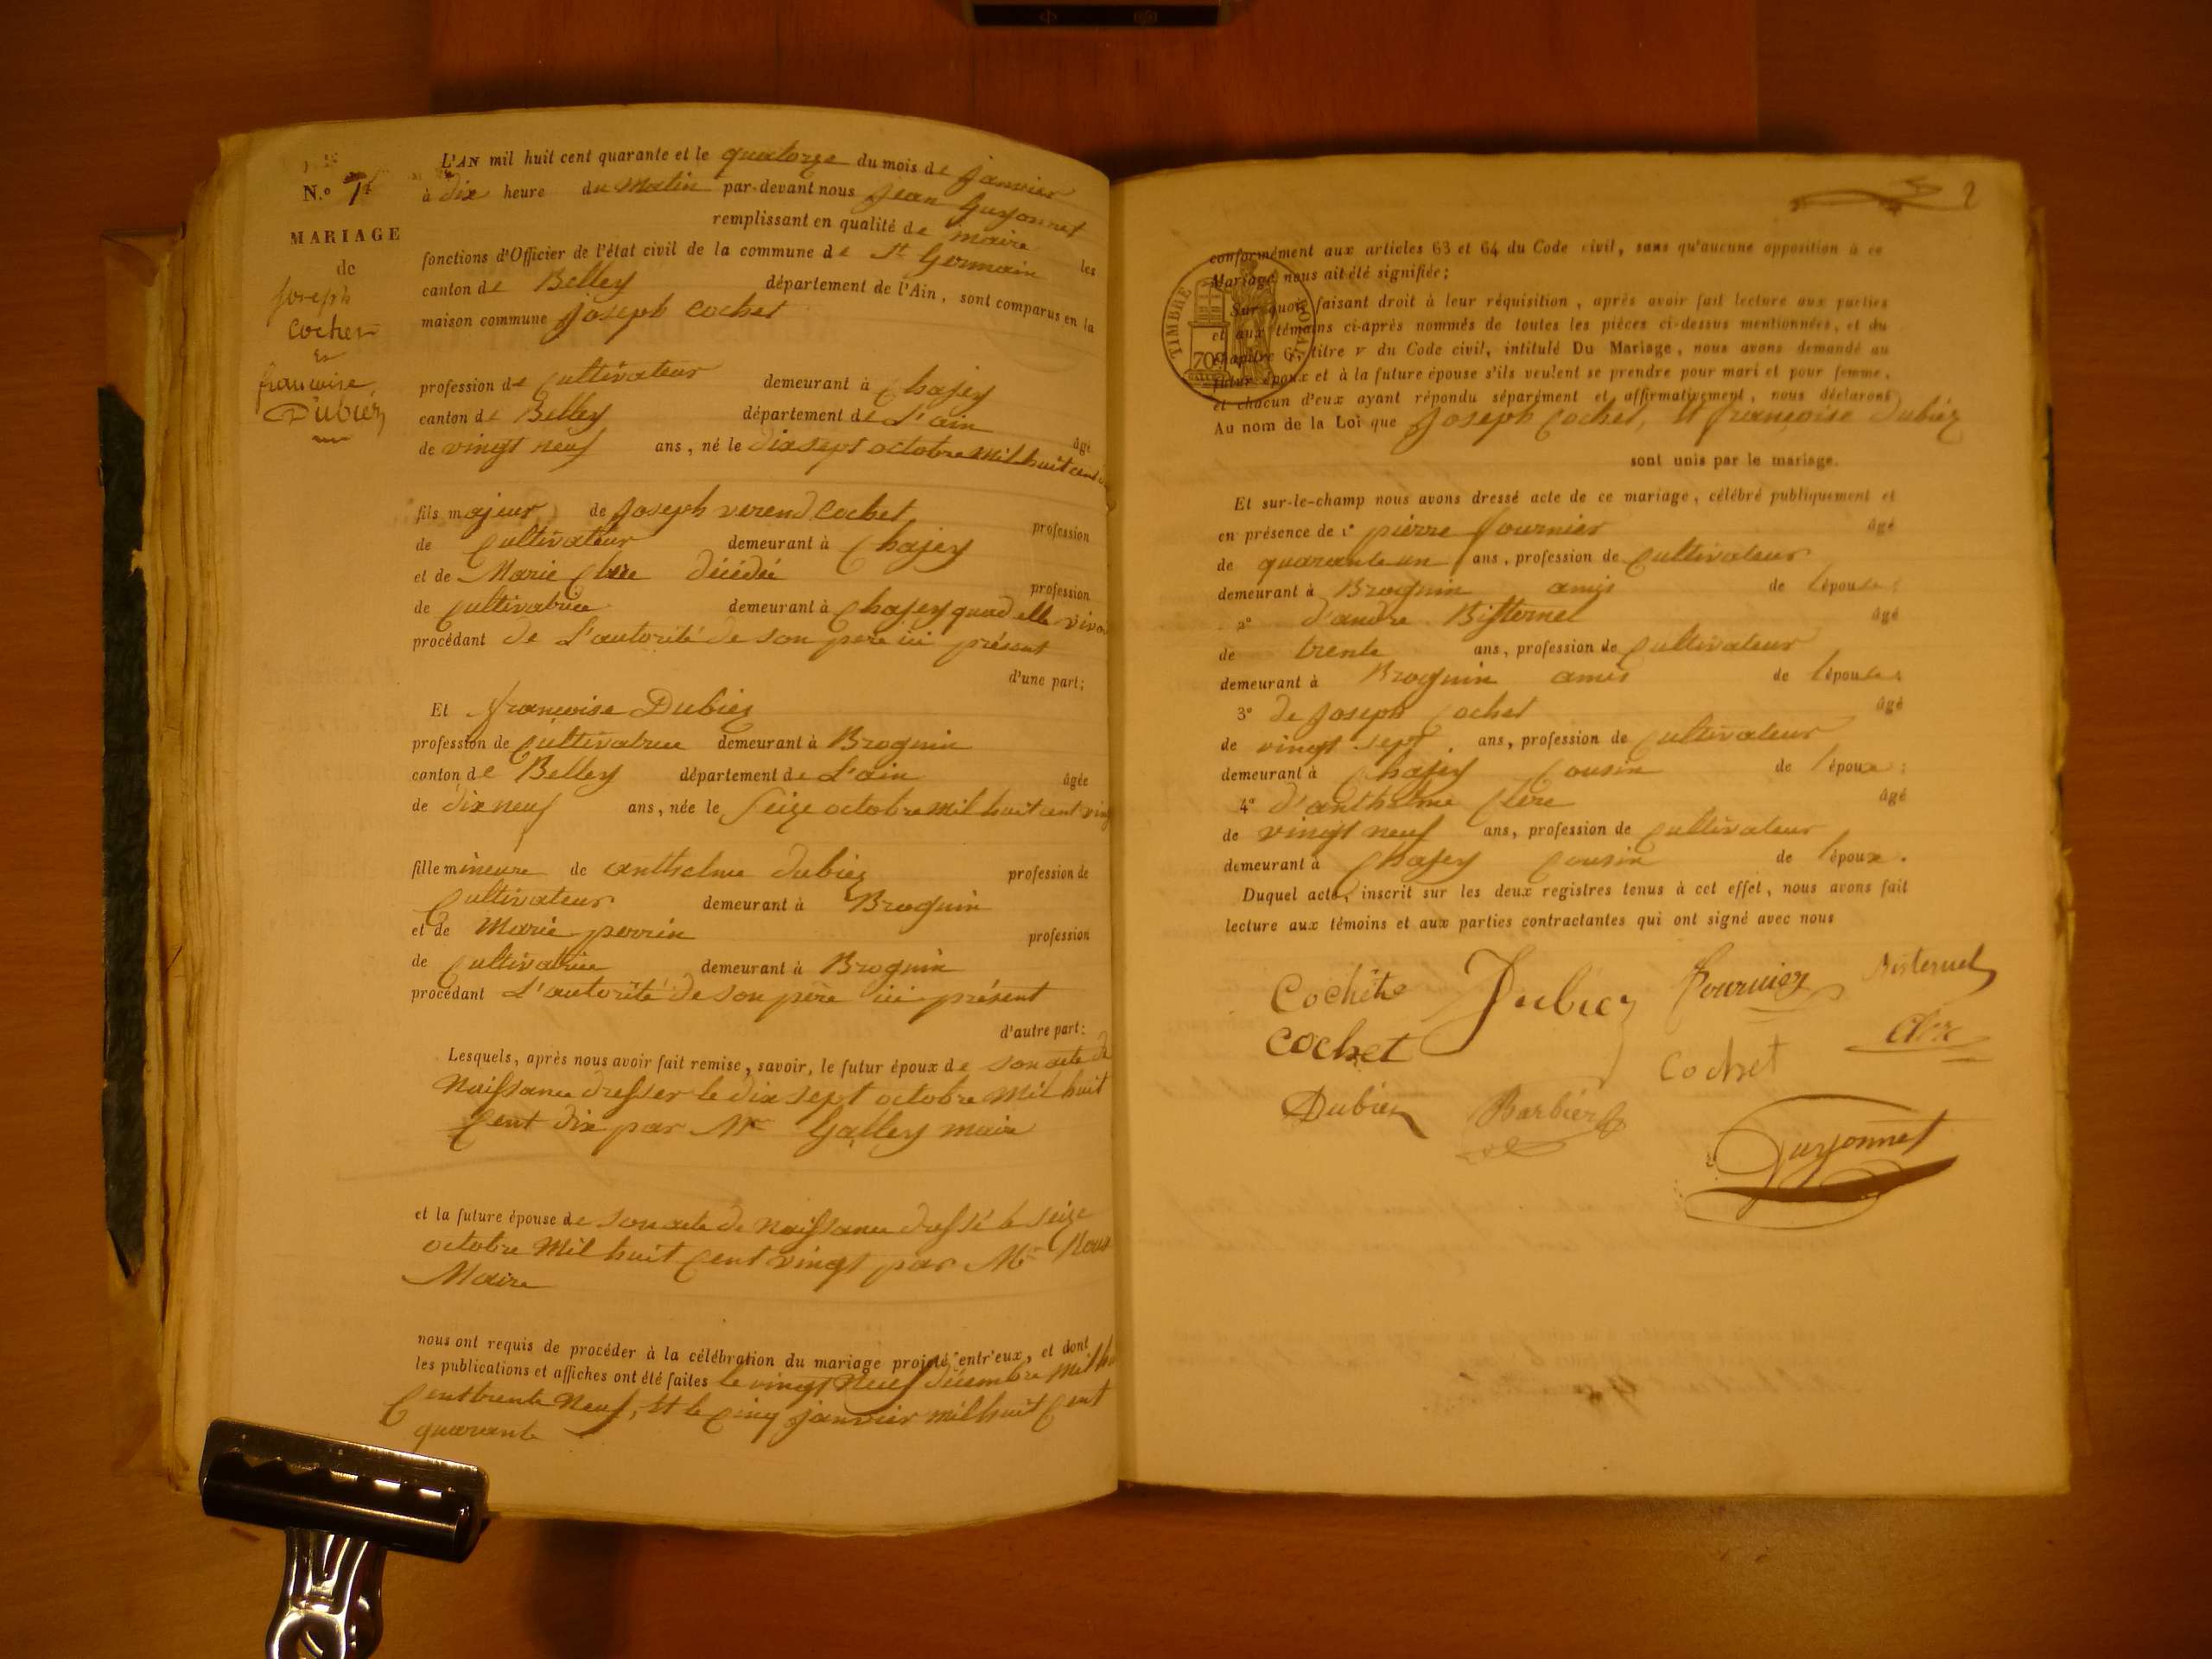 N.º 1er
MARIAGE
de
Joseph
Cochet
et
françoise
Dubiez
L'AN mil huit cent quarante et le quatorze du mois de janvier
à dix heure du Matin par-devant nous Jean Guyonnet
remplissant en qualité de maire les
fonctions d'Officier de l'état civil de la commune de St Germain
canton de Belley département de l'Ain, sont comparus en la
maison commune Joseph Cochet
profession de Cultivateur demeurant à Chazey
canton de Belley département de L'ain âgé
de vingt neuf ans, né le dix sept octobre mil huit cent
fils majeur de Joseph verend Cochet profession
de Cultivateur demeurant à Chazey
et de Marie Clere décédée profession
de Cultivatrice demeurant à Chazey quand elle vivoi
procédant de L'autorité de son père ici présent
d'une part;
Et françoise Dubiez
profession de Cultivatrice demeurant à Brognin
canton de Belley département de L'ain âgée
de dix neuf ans, née le Seize octobre mil huit cent ving
fille mineure de anthelme dubiez profession de
Cultivateur demeurant à Brognin
et de Marie perrin profession
de Cultivatrice demeurant à Brognin
procédant L'autorité de son père ici présent
d'autre part:
Lesquels, après nous avoir fait remise, savoir, le futur époux de son acte de
Naissance dresser le dix sept octobre mil huit
Cent dix par Mr Galley maire
et la future épouse de son acte de Naissance dressé le seize
octobre Mil huit Cent vingt par Mr
Maire
nous ont requis de procéder à la célébration du mariage projeté entr'eux, et dont
les publications et affiches ont été faites le vingt Neuf décembre mil hu
Cent trente Neuf, et le Cinq janvier mil huit Cent
quarante
2
conformément aux articles 63 et 64 du Code civil, sans qu'aucune opposition à ce
Mariage nous ait été signifiée;
Sur quoi faisant droit à leur réquisition, après avoir fait lecture aux parties
et aux témoins ci-après nommés de toutes les pièces ci-dessus mentionnées, et du
chapitre 6, titre v du Code civil, intitulé Du Mariage, nous avons demandé au
futur époux et à la future épouse s'ils veulent se prendre pour mari et pour femme,
et chacun d'eux ayant répondu séparément et affirmativement, nous déclarons
Au nom de la Loi que Joseph Cochet, et françoise dubiez
sont unis par le mariage.
TIMBRE ROYAL
70c
Et sur-le-champ nous avons dressé acte de ce mariage, célébré publiquement et
en présence de 1º pierre fournier âgé
de quarante un ans, profession de Cultivateur
demeurant à Brognin amis de l'épouse;
2º d'andre Bisternel âgé
de trente ans, profession de Cultivateur
demeurant à Brognin amis de l'épouse;
3º de Joseph Cochet âgé
de vingt sept ans, profession de Cultivateur
demeurant à Chazey Cousin de l'époux;
4º d'anthelme Clere âgé
de vingt neuf ans, profession de Cultivateur
demeurant à Chazey Cousin de l'époux.
Duquel acte, inscrit sur les deux registres tenus à cet effet, nous avons fait
lecture aux témoins et aux parties contractantes qui ont signé avec nous
Cochet Dubiez Fournier Bisternel
Cochet Cochet Clere
Dubiez Barbier
Guyonnet